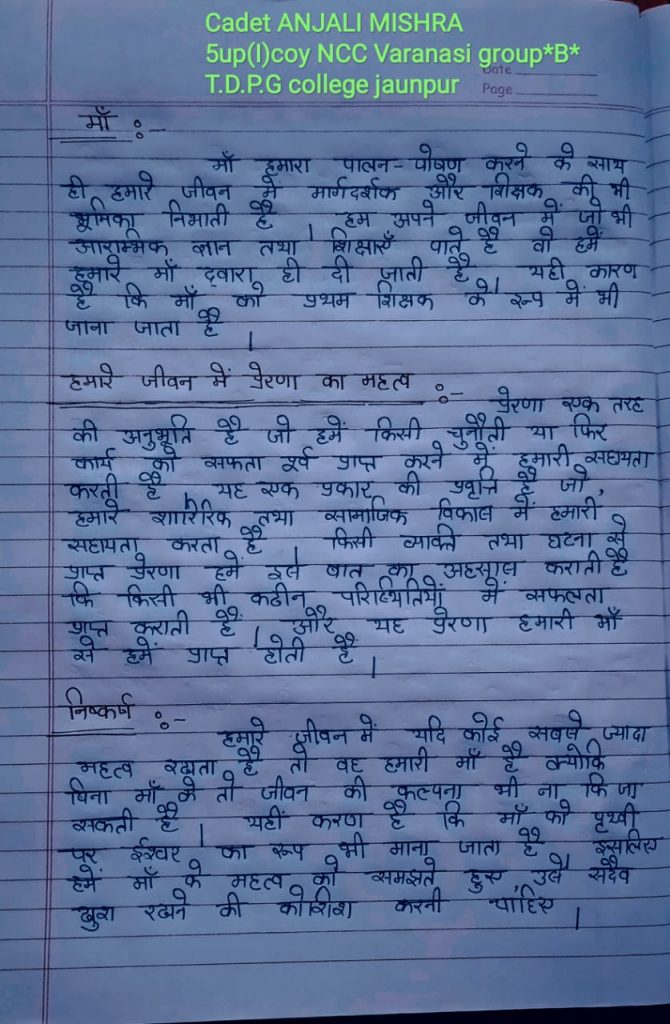 Cadet ANJALI MISHRA
5up(I)coy NCC Varanasi group*B*
T.D.P.G college jaunpur
Date
Page
माँ :-
माँ हमारा पालन-पोषण करने के साथ
ही हमारे जीवन में मार्गदर्शक और शिक्षक की भी
भूमिका निभाती है। हम अपने जीवन में जो भी
आरम्भिक ज्ञान तथा शिक्षाएँ पाते है वो हमें
हमारे माँ द्वारा ही दी जाती है। यही कारण
है कि माँ को प्रथम शिक्षक के रूप में भी
जाना जाता है।
हमारे जीवन में प्रेरणा का महत्व :-
प्रेरणा एक तरह
की अनुभूति है जो हमें किसी चुनौती या फिर
कार्य को सफता पूर्व प्राप्त करने में हमारी सहायता
करती है। यह एक प्रकार की प्रवृत्ति है जो,
हमारे शारीरिक तथा सामाजिक विकास में हमारी
सहायता करता है। किसी व्यक्ति तथा घटना से
प्राप्त प्रेरणा हमें इस बात का अहसास कराती है
कि किसी भी कठीन परिस्थितियों में सफलता
प्राप्त कराती हैं। और यह प्रेरणा हमारी माँ
से हमें प्राप्त होती हैं।
निष्कर्ष :-
हमारे जीवन में यदि कोई सबसे ज्यादा
महत्व रखता है तो वह हमारी माँ है क्योकि
बिना माँ के तो जीवन की कल्पना भी ना कि जा
सकती है। यहीं करण है कि माँ को पृथ्वी
पर ईश्वर का रूप भी माना जाता है। इसलिए
हमें माँ के महत्व को समझते हुए, उसे सदैव
खुश रखने की कोशिश करनी चाहिए।